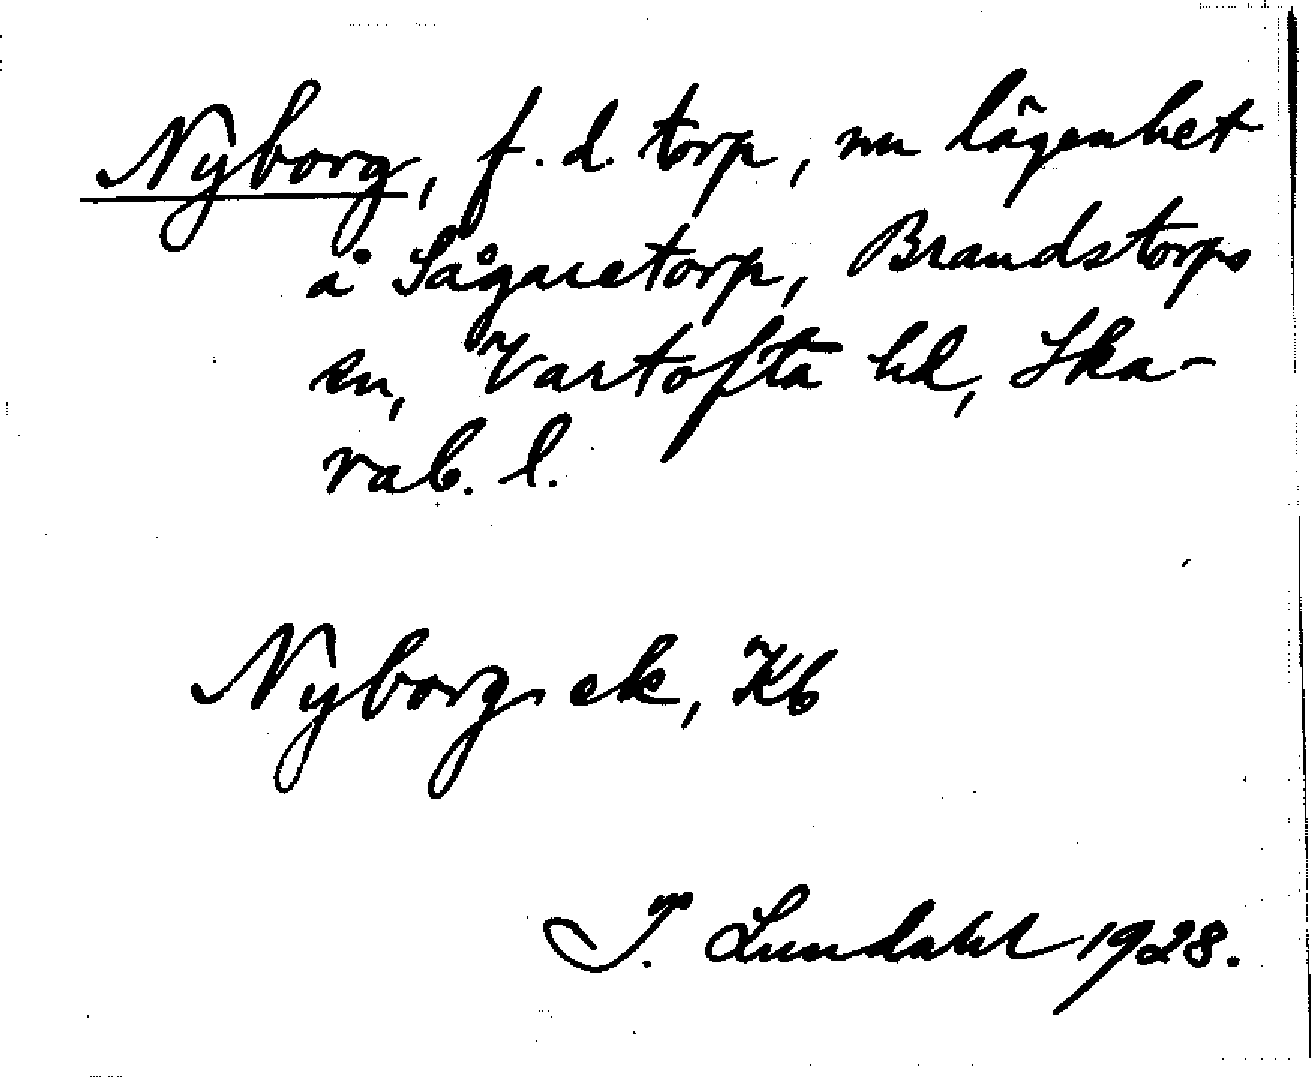 Nyborg, f. d. torp, nu lägenhet
å Sågaretorp, Brandstorps
sn, Vartofta hd, Ska-
rab. l.
Nyborg ek, Kb
I. Lundahl 1928.